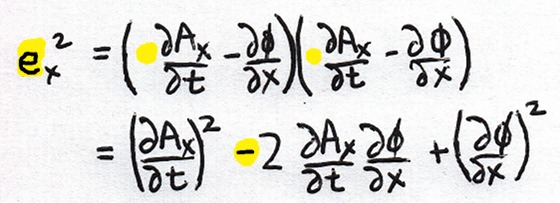 eₓ² = (∂Aₓ/∂t - ∂ϕ/∂x)(∂Aₓ/∂t - ∂ϕ/∂x)
= (∂Aₓ/∂t)² - 2 ∂Aₓ/∂t ∂ϕ/∂x + (∂ϕ/∂x)²